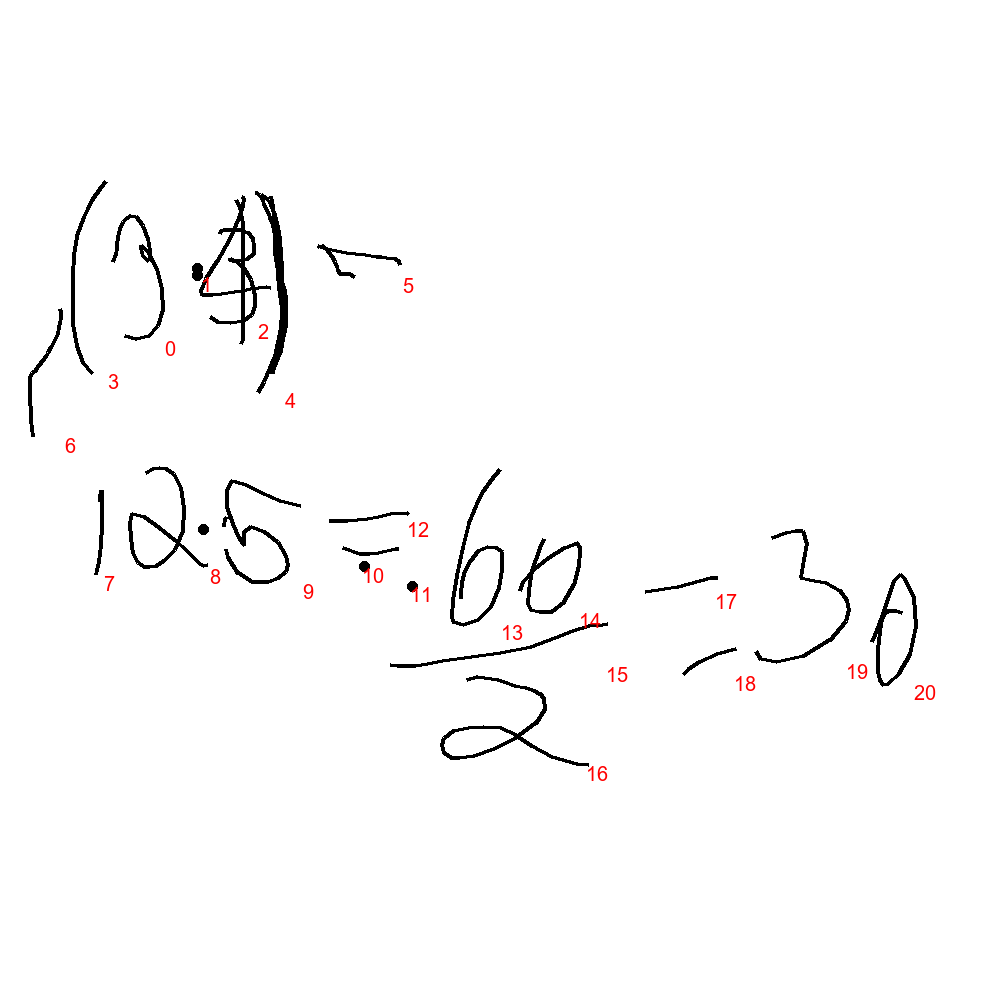 (3 · 4)
12 · 5 = 60/2 = 30
0 1 2 3 4 5 6
7 8 9 10 11 12 13 14 15 16 17 18 19 20